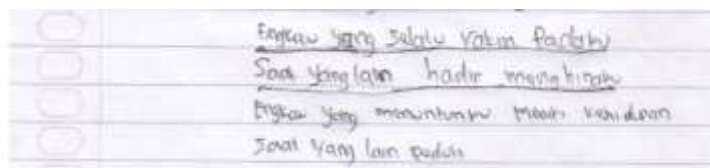 Engkau yang selalu yakin Padaku
Saat yang lain hadir menghinaku
Engkau yang menuntunku meniti kehidupan
Saat yang lain